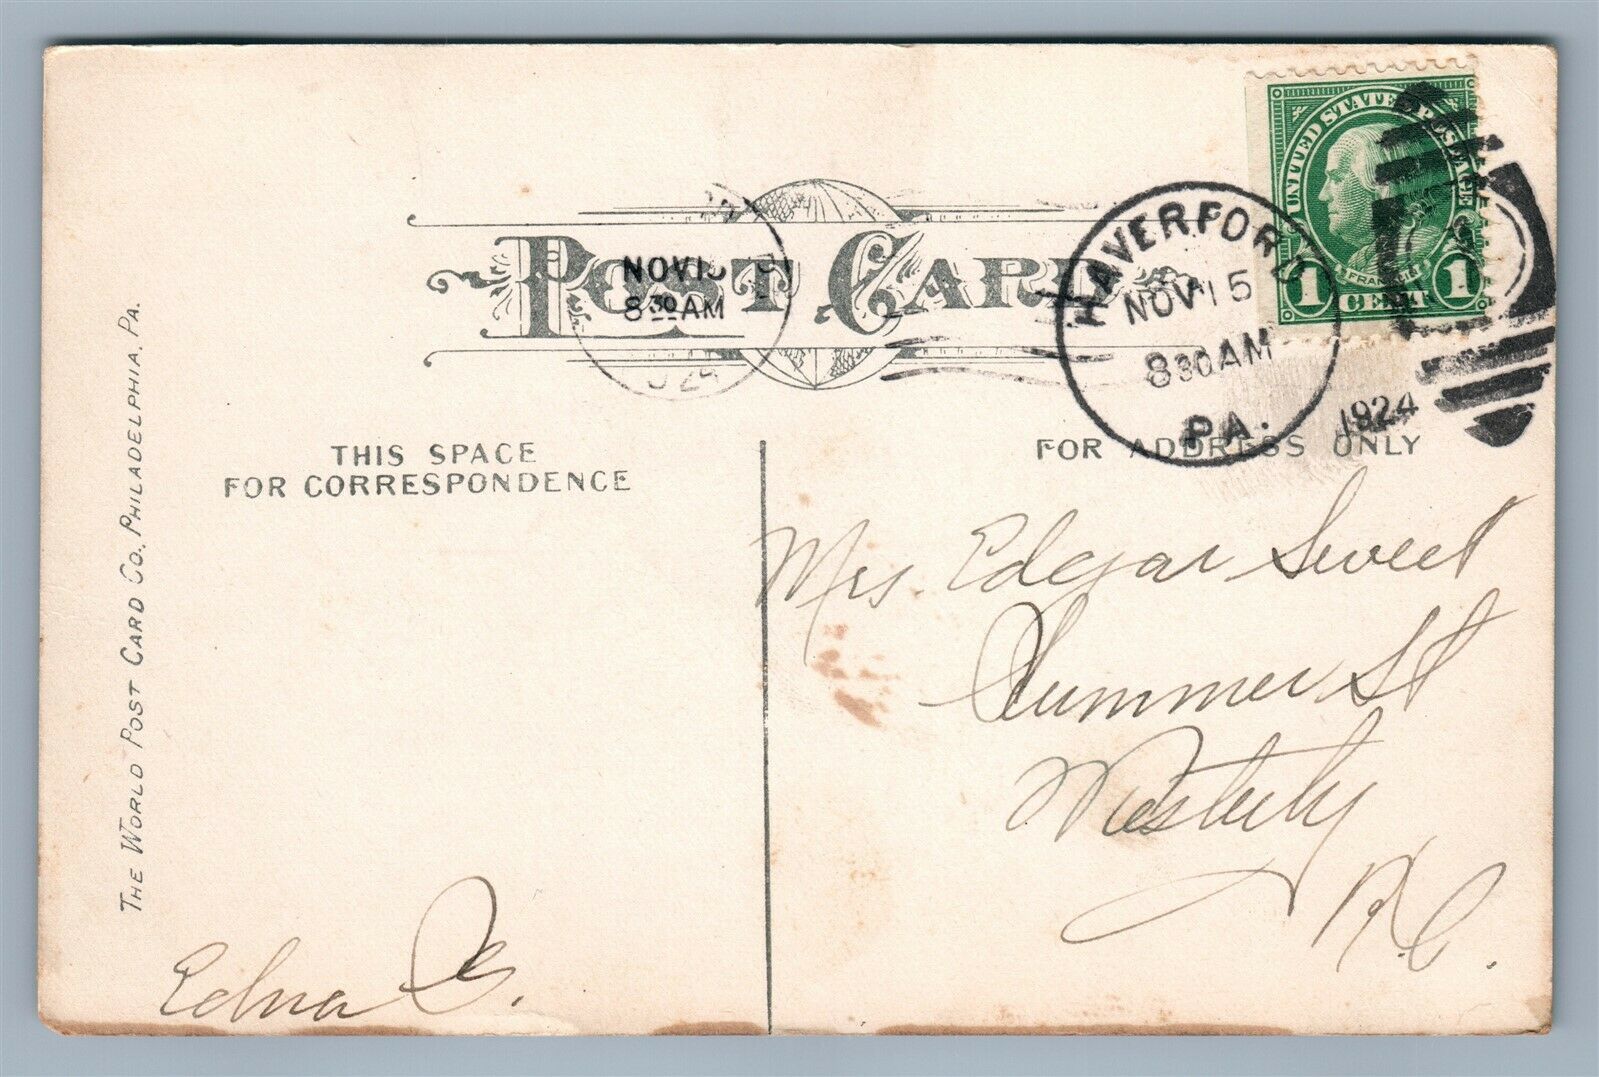 POST CARD
NOV 15
8 30 AM
HAVERFORD
NOV 15
8 30 AM
PA.
1924
UNITED STATES POSTAGE
FRANKLIN
1 CENT 1
THIS SPACE
FOR CORRESPONDENCE
FOR ADDRESS ONLY
THE WORLD POST CARD CO., PHILADELPHIA, PA.
Mrs. Edgar Sweet
Summer St
Westerly
R.I.
Edna S.